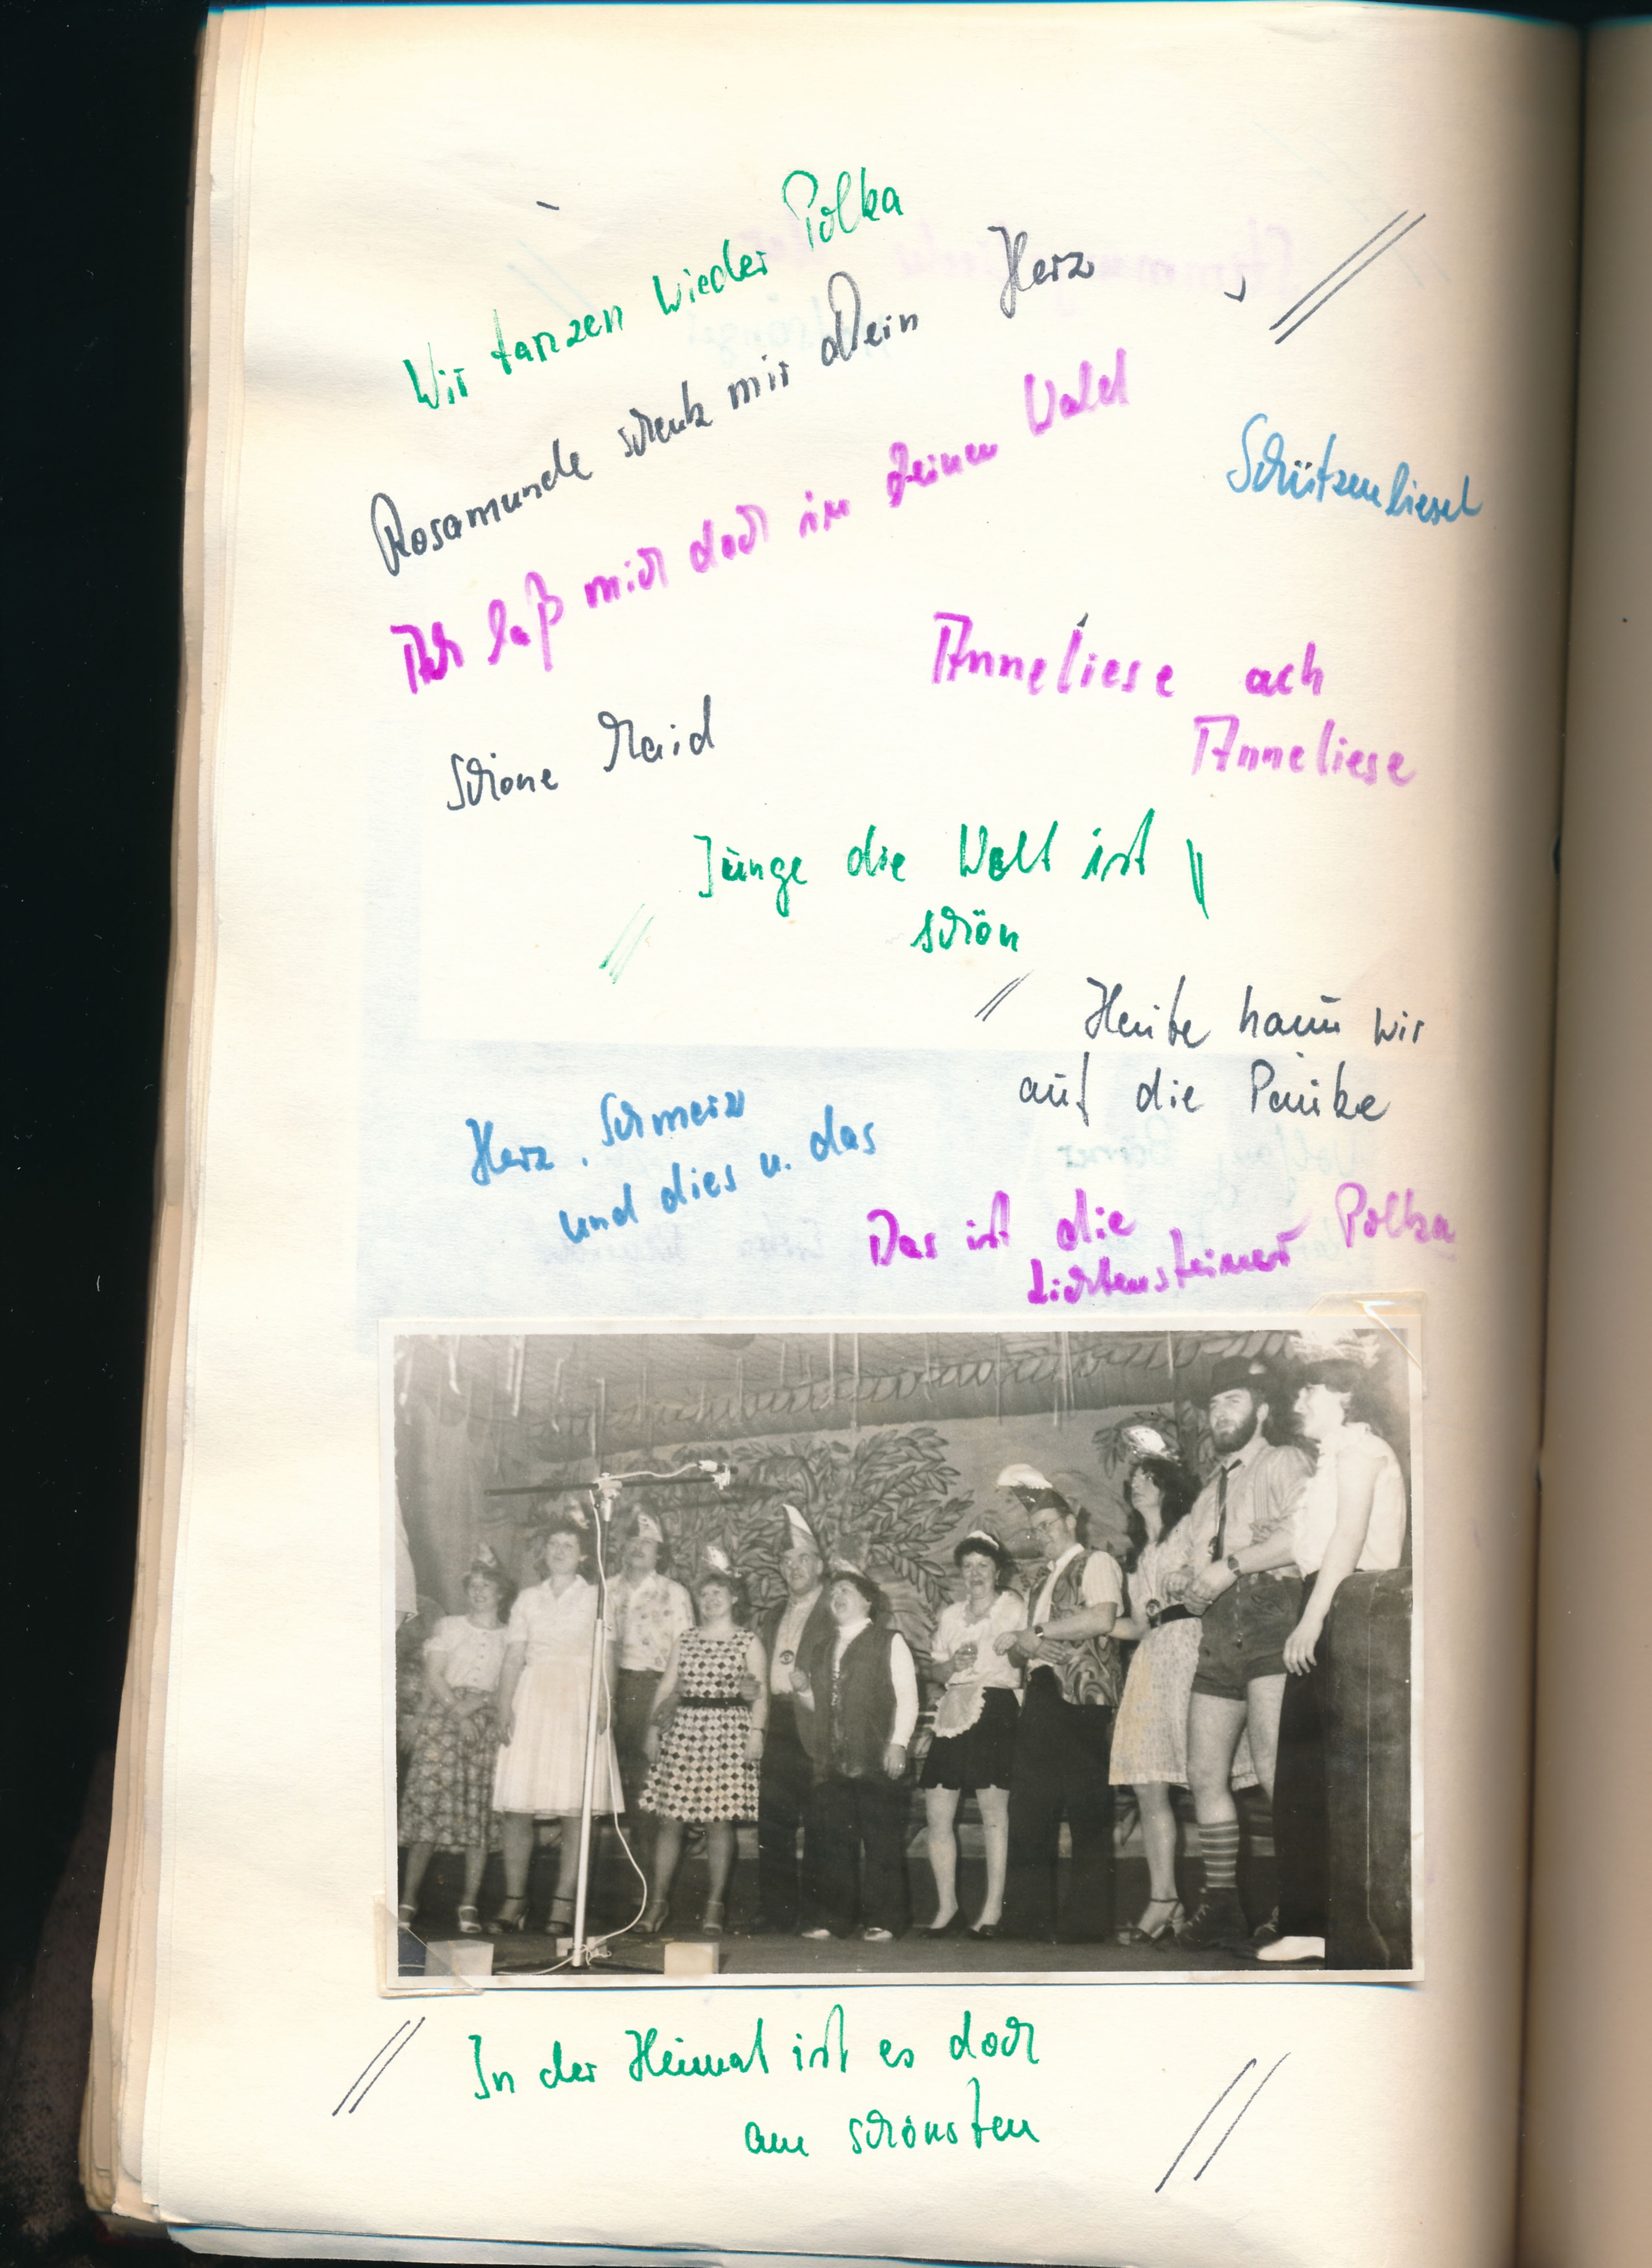 Wir tanzen wieder Polka
Rosamunde schenk mir dein Herz
Ach laß mich doch in deinen Wald
Schützenliesel
Anneliese ach
Anneliese
Schöne Maid
Junge die Welt ist
schön
Heute haun wir
auf die Pauke
Herz. Schmerz
und dies u. das
Das ist die Polka
Lichtensteiner
In der Heimat ist es doch
am schönsten